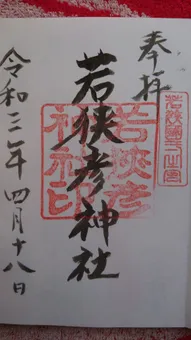 奉拝
若狭國一之宮
若狭彦神社
若狭彦神社印
令和三年四月十八日